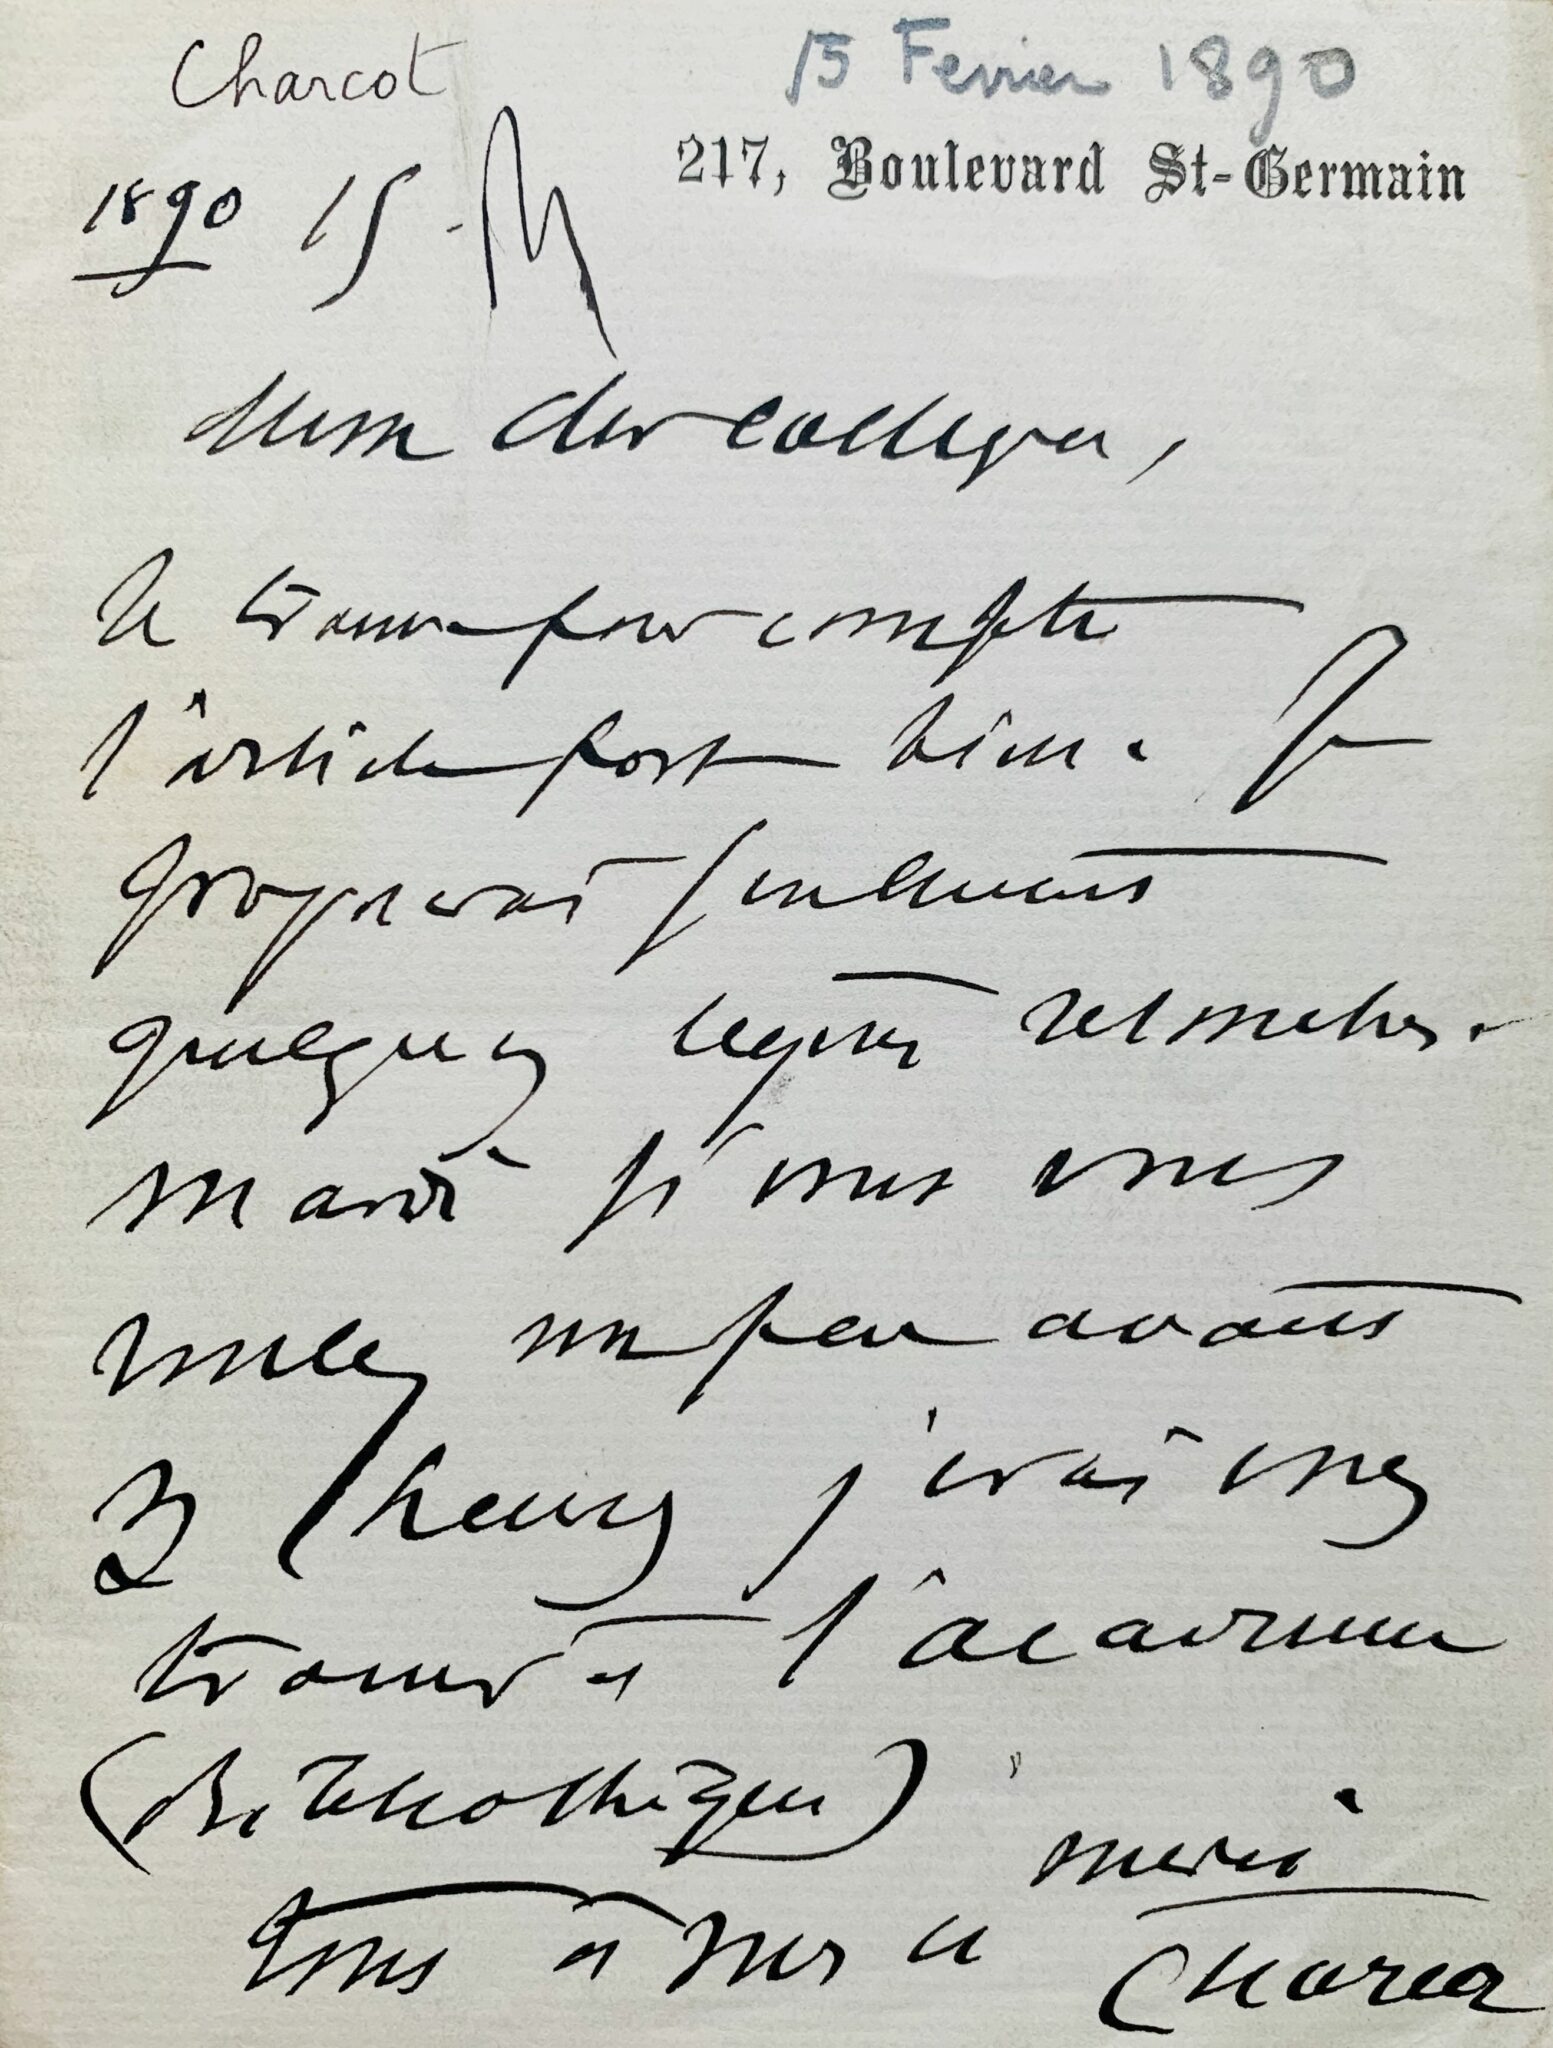 Charcot
15 Fevrier 1890
217, Boulevard St-Germain
1890 15
Mon cher collegue,
Je trouve pour compte
l'article fort bien. Je
proposerai seulement
quelques legères retouches.
mardi si vous vous
voulez un peu avant
3 heures j'irai vous
trouver à l'academie
(Bibliothèque)
merci
tout à vous
Charcot